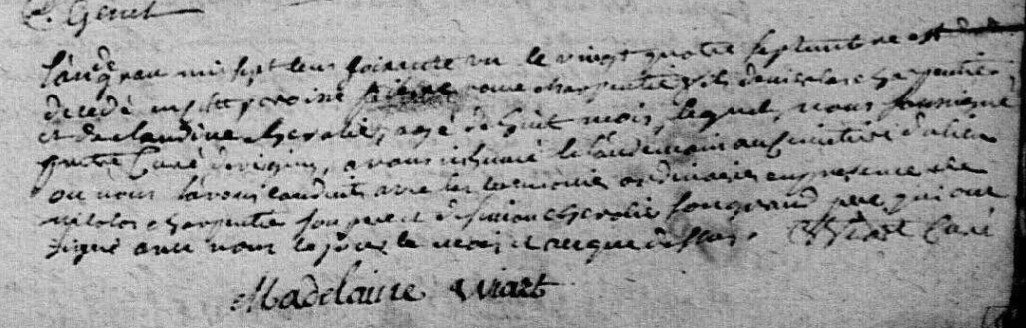 C. Genet
L'an de grace mil sept cens soixante un le vingt quatre septembre est
decedé en cette paroisse pierre charpentier fils de nicolas charpentier
et de claudine chevalier, agé de huit mois, lequel, nous soussigné
pretre Curé avons inhumé le lendemain au cimetiere
ou nous l'avons conduit avec les ceremonies ordinaires en presence de
nicolas charpentier son pere et de simon chevalier son grand pere qui ont
signé avec nous le jour le mois et an que dessus. Viart Curé
Madelaine Viart